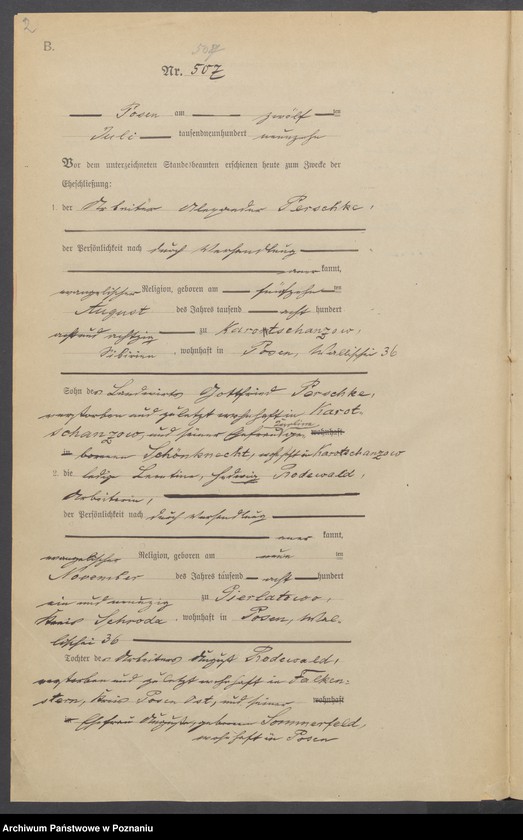 2
B.
507
Nr. 507
Posen am zwölf ten
Juli tausendneunhundert neunzehn
Vor dem unterzeichneten Standesbeamten erschienen heute zum Zwecke der
Eheschließung:
1. der Arbeiter Alexander Perschke,
der Persönlichkeit nach durch Verhandlung
aner kannt,
evangelischer Religion, geboren am fünfzehn ten
August des Jahres tausend acht hundert
achtundachtzig zu Karotschanzow,
Sibirien, wohnhaft in Posen, Wallischei 36
Sohn des Landwirts Gottfried Perschke,
verstorben und zuletzt wohnhaft in Karot-
schanzow, und seiner Ehefrau wohnhaft
in geborenen Schönknecht, wohnhaft in Karotschanzow
2. die ledige Hedwig Rodewald,
Arbeiterin,
der Persönlichkeit nach durch Verhandlung
aner kannt,
evangelischer Religion, geboren am neun ten
November des Jahres tausend acht hundert
ein und neunzig zu Pierlatowo,
Kreis Schroda, wohnhaft in Posen, Wal-
lischei 36
Tochter des Arbeiters August Rodewald,
verstorben und zuletzt wohnhaft in Falken-
stern, Kreis Posen Ost, und seiner wohnhaft
in Ehefrau Auguste, geborenen Sommerfeld,
wohnhaft in Posen
Archiwum Państwowe w Poznaniu